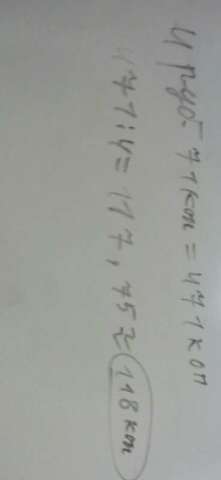 4 руб. 71 коп = 471 коп
471:4=117,75≈118 коп